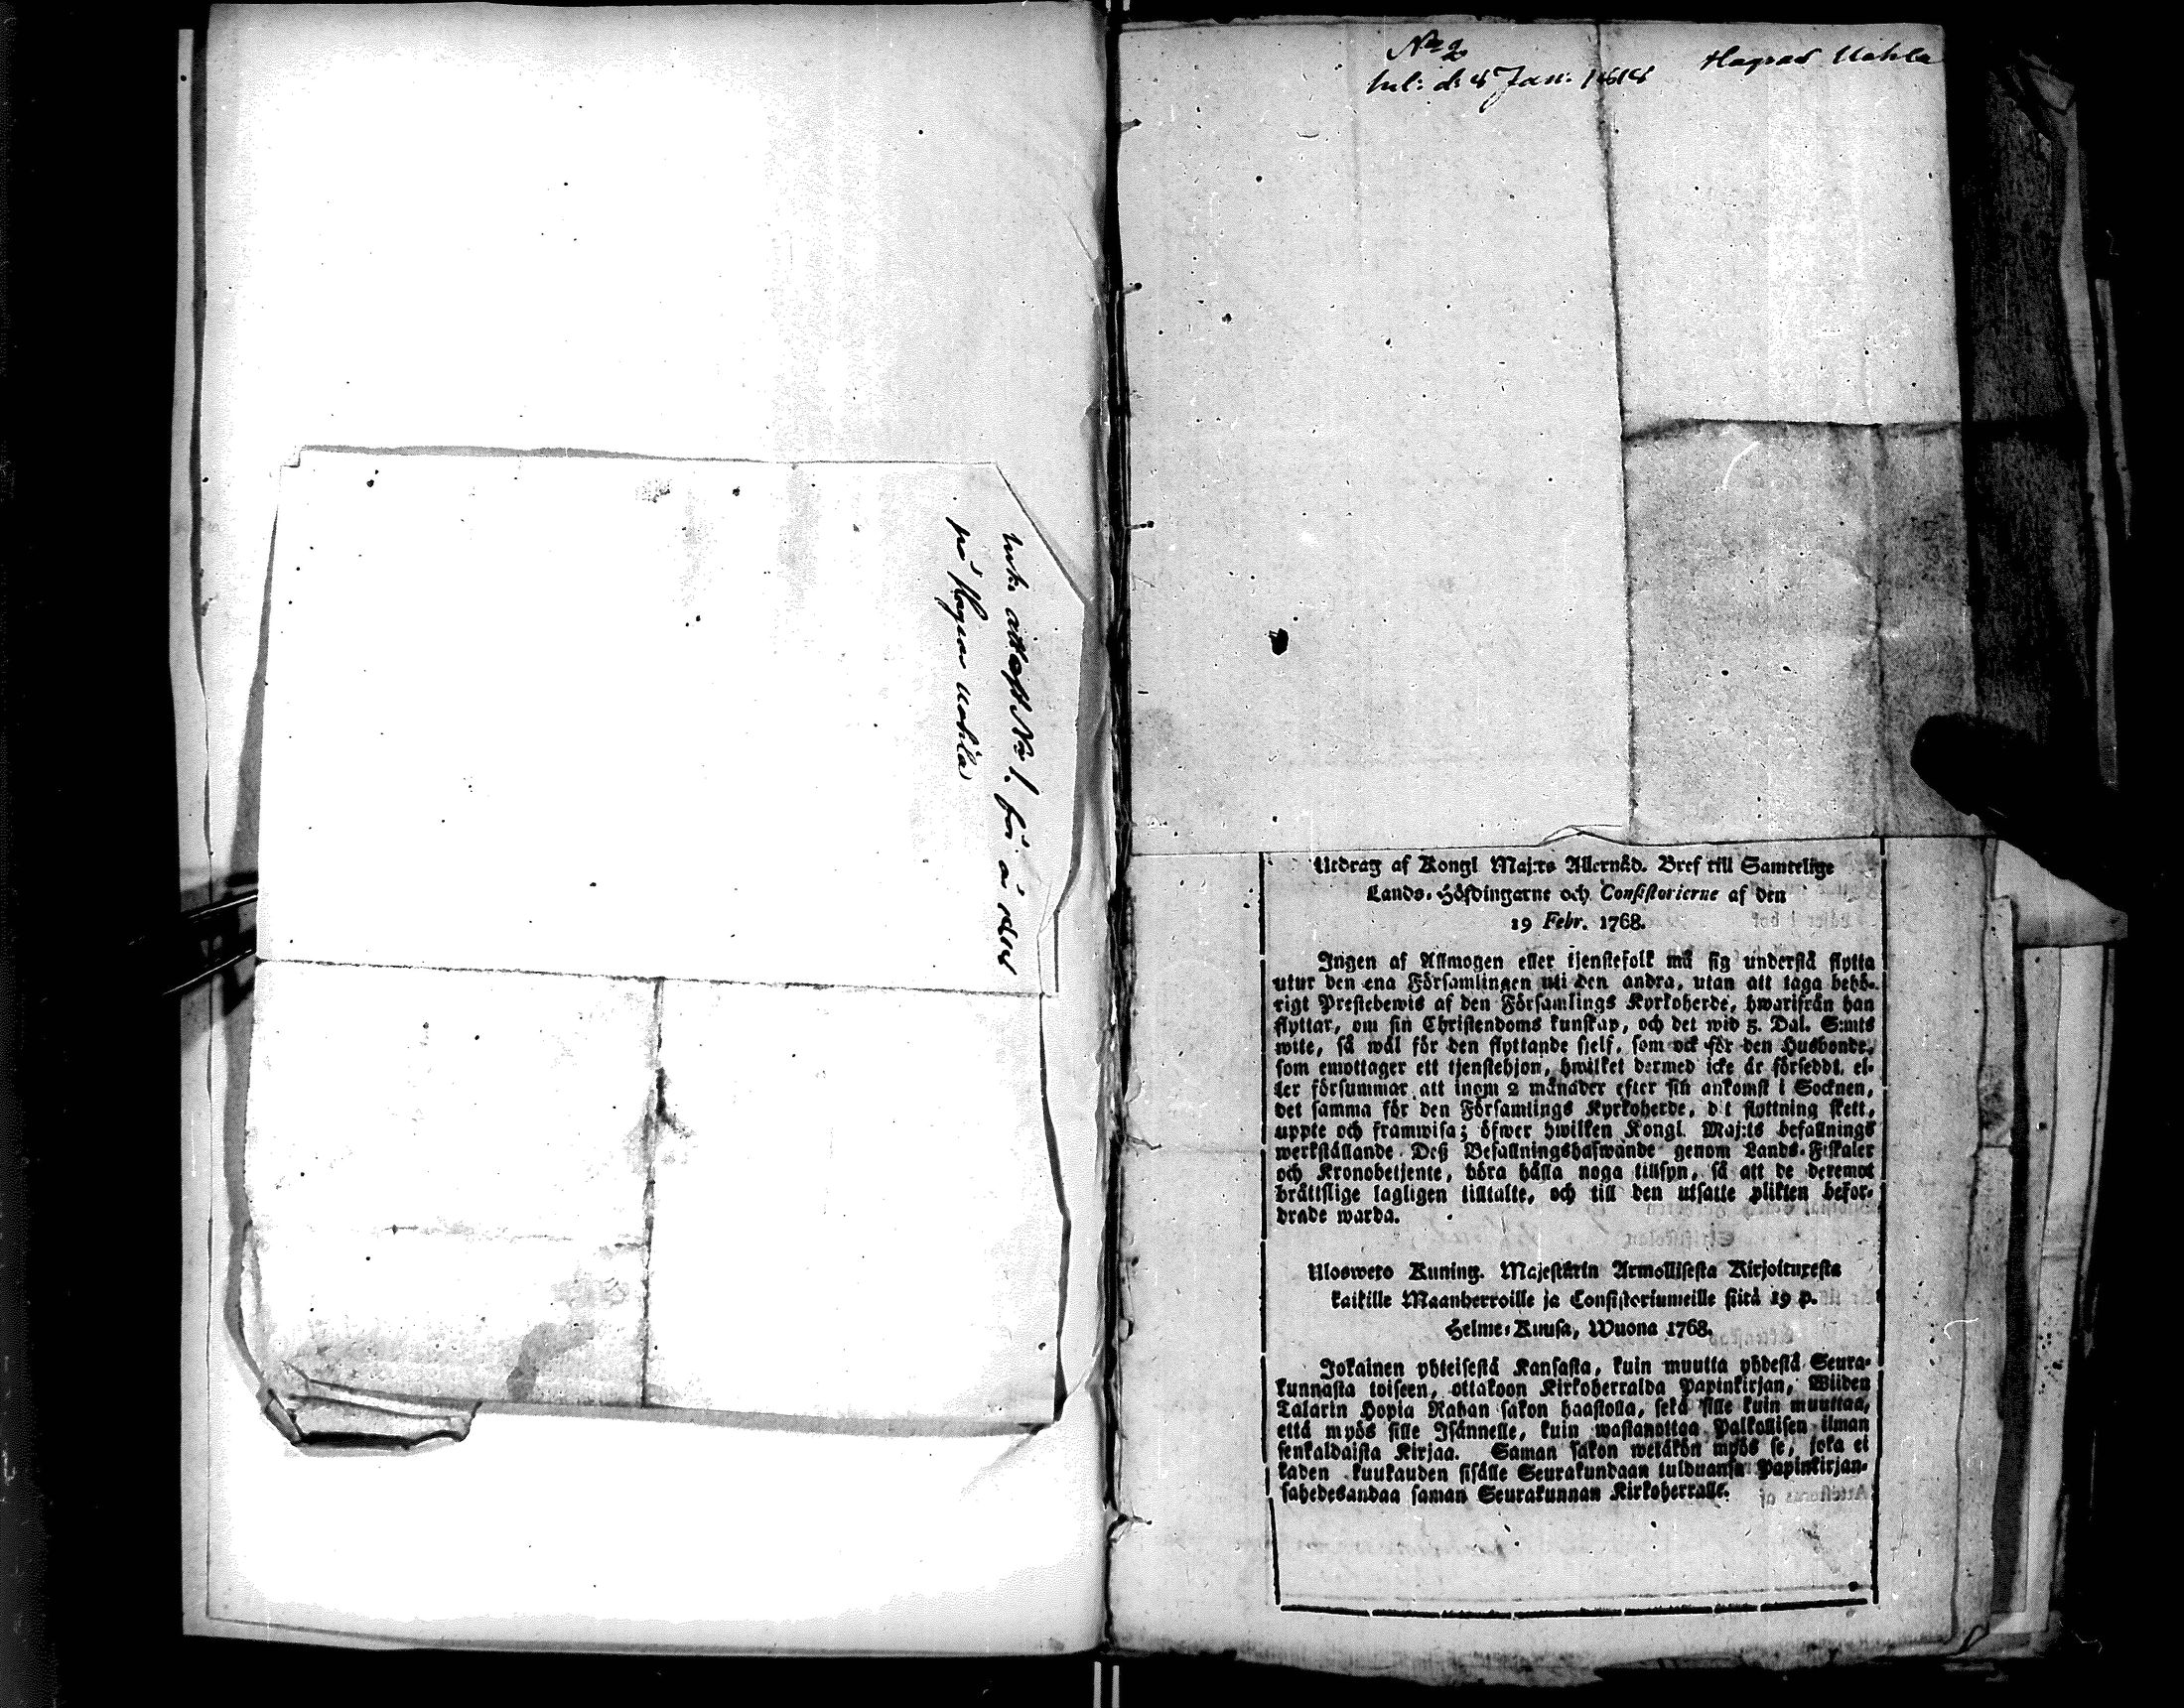 attest No 1. för år 1818
på Hagnar Uohla
No 2
Inl: d: 4 Jan: 1818
Utdrag af Kongl Maj:ts Allernåd. Bref till Samtelige
Lands-Höfdingarne och Consistorierne af den
19 Febr. 1768.
Ingen af Allmogen eller tjenstefolk må sig understå flytta
utur den ena Församlingen uti den andra, utan att taga behö-
rigt Prestebewis af den Församlings Kyrkoherde, hwarifrån han
flyttar, om sin Christendoms kunskap, och det wid 5. Dal. S:mts
wite, så wäl för den flyttande sjelf, som ock för den Husbonde,
som emottager ett tjenstehjon, hwilket dermed icke är försedt, el-
ler försummar att inom 2 månader efter sin ankomst i Socknen,
det samma för den Församlings Kyrkoherde, dit flyttning skett,
uppte och framwisa; öfwer hwilken Kongl. Maj:ts befallnings
werkställande Deß Befallningshafwande genom Lands-Fiskaler
och Kronobetjente, böra hålla noga tillsyn, så att de deremot
bråttslige lagligen tilltalte, och till den utsatte plikten befor-
drade warda.
Ulosweto Kuning. Majestätin Armollisesta Kirjoituxesta
kaikille Maanherroille ja Consistoriumeille siitä 19 p.
Helme-Kuusa, Wuona 1768.
Jokainen yhteisestä Kansasta, kuin muutta yhdestä Seura-
kunnasta toiseen, ottakoon Kirkoherralda Papinkirjan, Wiiden
Talarin Hopia Rahan sakon haastolla, sekä sille kuin muuttaa,
että myös sille Isännelle, kuin wastanottaa Palkollisen ilman
senkaldaista Kirjaa. Saman sakon wetäkön myös se, joka ei
kaden kuukauden sisälle Seurakundaan tulduansa Papinkirjan-
sahedesandaa saman Seurakunnan Kirkoherralle.